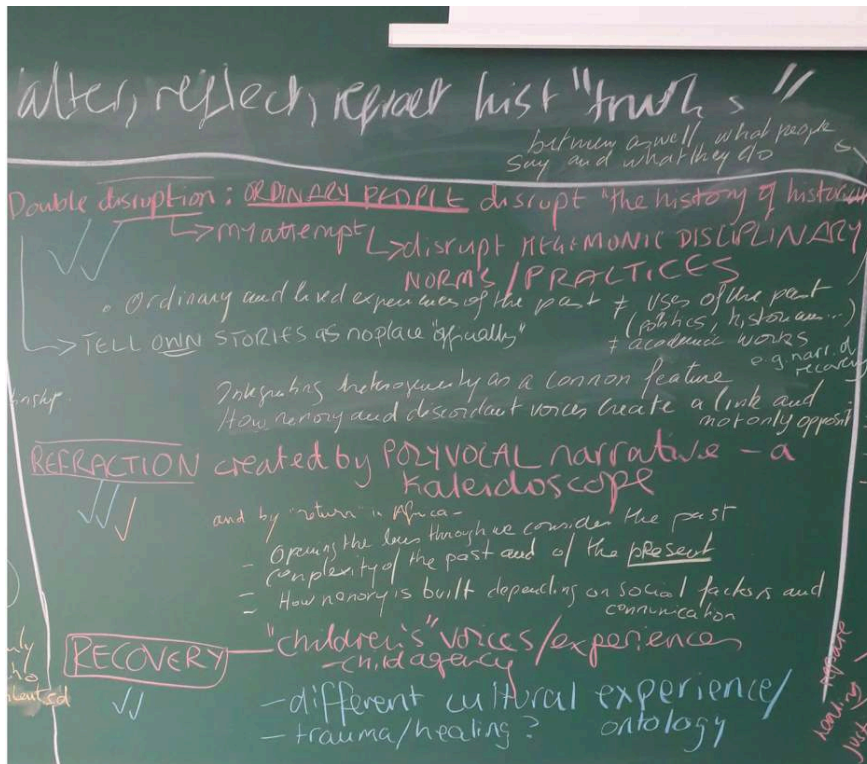 alter, reflect, refract hist "truths"
between as well what people
say and what they do
Double disruption: ORDINARY PEOPLE disrupt "the history of historian
↳ my attempt ↳ disrupt HEGEMONIC DISCIPLINARY
NORMS/PRACTICES
• Ordinary and lived experiences of the past ≠ uses of the past
(politics, historians...)
→ TELL OWN STORIES as no place "officially"
≠ academic works
e.g. narr. of
recovery
Integrating heterogeneity as a common feature
How memory and discordant voices create a link and
not only opposit
REFRACTION created by POLYVOCAL narrative - a
kaleidoscope
and by "return" in Africa -
- Opening the lens through we consider the past
- complexity of the past and of the present
- How memory is built depending on social factors and
communication
RECOVERY - "children's" voices/experiences
- child agency
- different cultural experience/
ontology
- trauma/healing?